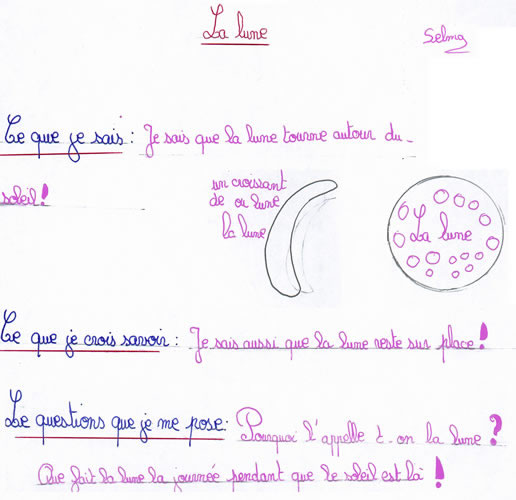 La lune
Selma
Ce que je sais : Je sais que la lune tourne autour du
soleil !
un croissant
de ou lune
la lune
La lune
Ce que je crois savoir : Je sais aussi que la lune reste sur place !
Le questions que je me pose : Pourquoi l'appelle t-on la lune ?
Que fait la lune la journée pendant que le soleil est là !